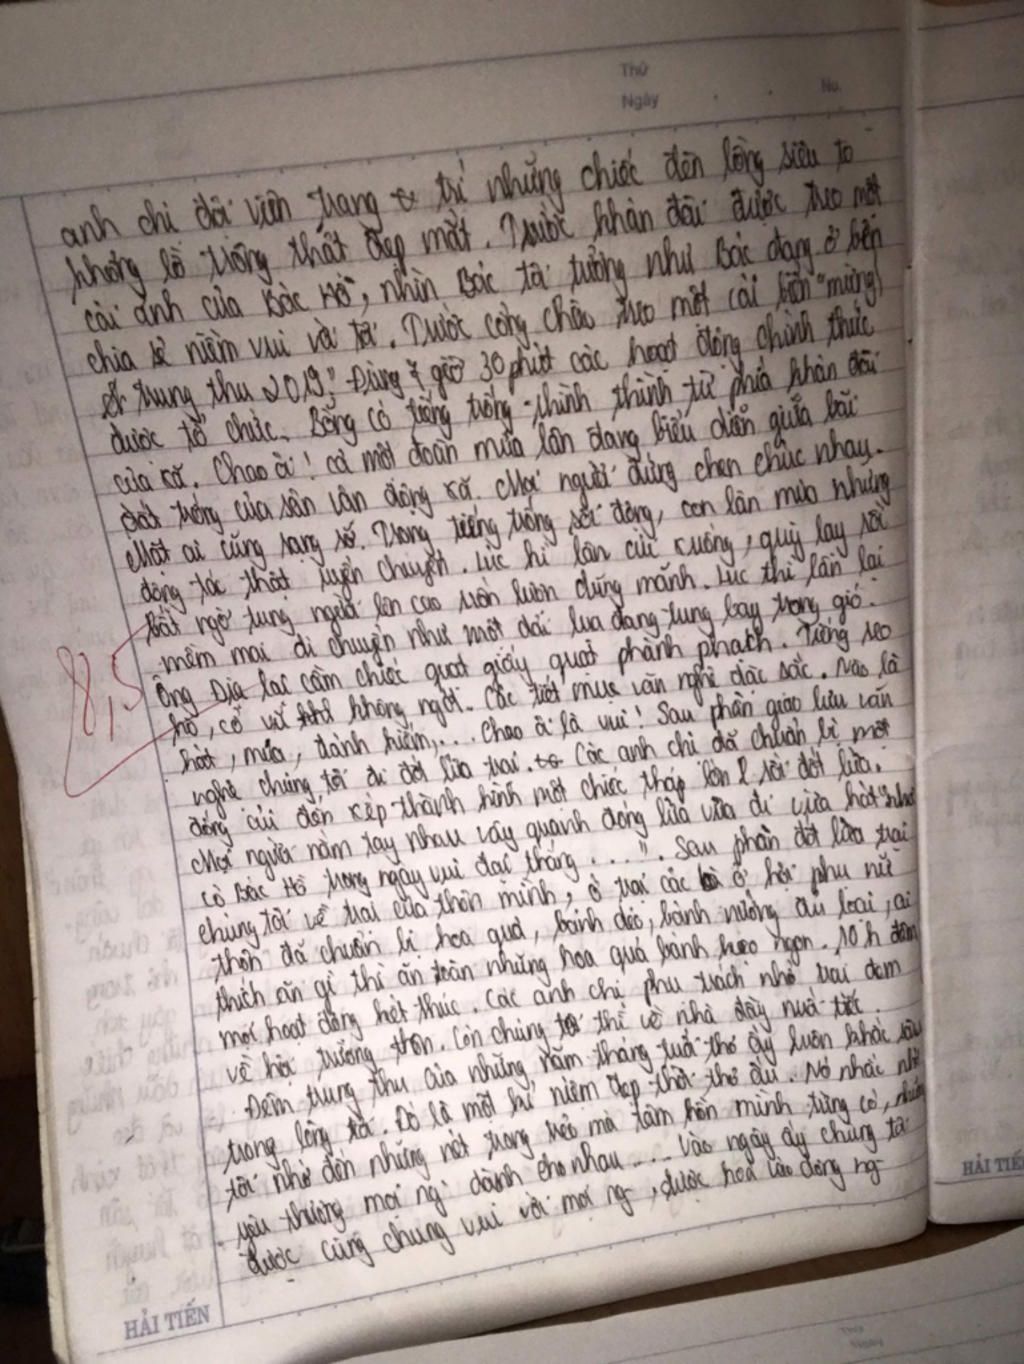 Thứ
Ngày
No.
anh chi đội viên trang trí những chiếc đèn lồng siêu to
khổng lồ trông thật đẹp mắt. Trước khán đài được treo một
cái ảnh của Bác Hồ, nhìn Bác tôi tưởng như Bác đang ở bên
chia sẻ niềm vui với tôi. Trước cổng chào treo một cái biển "mừng
trung thu 2019". Đúng 7 giờ 30 phút các hoạt động chính thức
được tổ chức. Bỗng có tiếng trống thình thình từ phía khán đài
của xã. Chao ôi! cả một đoàn múa lân đang biểu diễn giữa bãi
đất trống của sân vận động xã. Mọi người đứng chen chúc nhau.
Mắt ai cũng sáng rỡ. Trong tiếng trống sôi động, con lân múa những
động tác thật uyển chuyển. Lúc thì lân cúi xuống, quỳ lạy rồi
bất ngờ tung người lên cao vờn lượn dũng mãnh. Lúc thì lân lại
mềm mại di chuyển như một dải lụa đang tung bay trong gió.
Ông Địa lại cầm chiếc quạt giấy quạt phành phạch. Tiếng reo
hò, cổ vũ không ngớt. Các tiết mục văn nghệ đặc sắc. Nào là
hát, múa, đánh kiếm,... Chao ôi là vui! Sau phần giao lưu văn
nghệ chúng tôi đi đốt lửa trại. Các anh chị đã chuẩn bị một
đống củi đến xếp thành hình một chiếc tháp lớn rồi đốt lửa.
Mọi người nắm tay nhau vây quanh đống lửa vừa đi vừa hát "như
có Bác Hồ trong ngày vui đại thắng...". Sau phần đốt lửa trại
chúng tôi về trại của thôn mình, ở trại các bà ở hội phụ nữ
thôn đã chuẩn bị hoa quả, bánh dẻo, bánh nướng đủ loại, ai
thích ăn gì thì ăn toàn những hoa quả bánh kẹo ngon. 10 h đêm
mọi hoạt động kết thúc. Các anh chị phụ trách nhổ trại đem
về hội trường thôn. Còn chúng tôi thì về nhà đầy nuối tiếc
Đêm trung thu của những năm tháng tuổi thơ ấy luôn khắc sâu
trong lòng tôi. Đó là một kỉ niệm đẹp thời thơ ấu. Nó nhắc nhở
tôi nhớ đến những nét trong trẻo mà tâm hồn mình từng có, những
yêu thương mọi ng dành cho nhau.... Vào ngày ấy chúng ta
được cùng chung vui với mọi ng, được hoà vào dòng ng
8,5
HẢI TIẾN
HẢI TIẾ